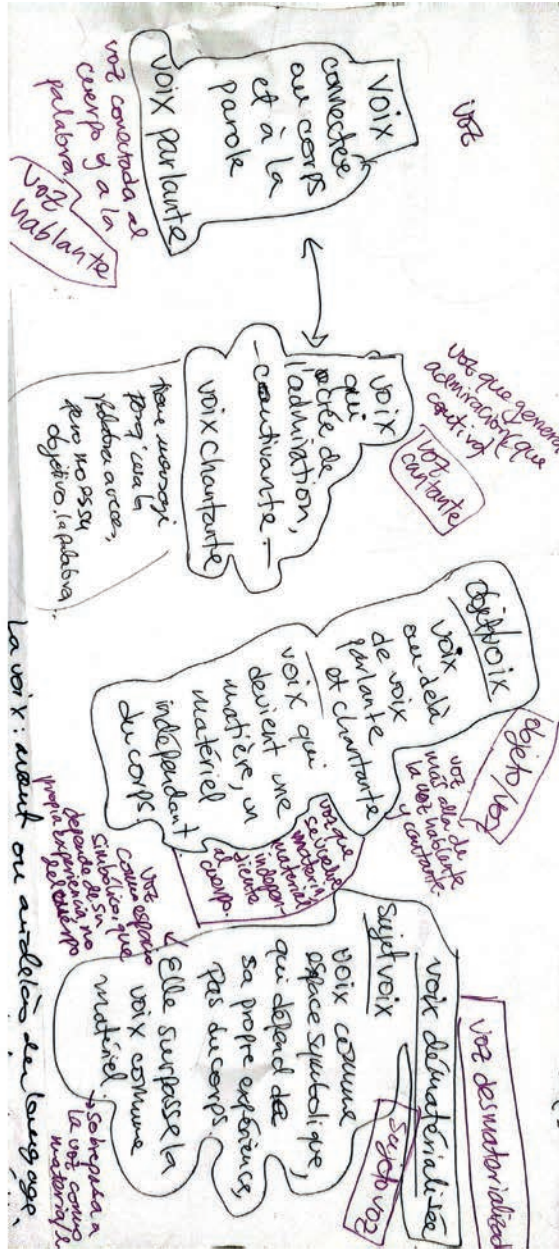 voz
voix
connectée
au corps
et à la
parole
voix parlante
voz conectada al
cuerpo y a la
palabra
voz
hablante
voz que genera
admiración (que
cautiva)
voz
cantante
voix
qui
de
l'admiration,
voix chantante
tiene
la
palabra a veces,
pero no es su
objetivo, la palabra.
objet voix
voix
au-delà
de voix
parlante
et chantante
voix qui
devient une
matière, un
matériel
independant
du corps
objeto/voz
voz
más allá de
la voz hablante
y cantante.
voz que
se vuelve
material
indepen
diente
al cuerpo.
voix dématérialisée
sujet voix
voix comme
espace symbolique,
qui dépend de
sa propre expérience,
pas du corps
Elle surpasse la
voix comme
matériel
voz desmaterializada
sujeto voz
voz
como espacio
simbólico, que
depende de su
propia experiencia no
del cuerpo
→ sobrepasa a
la voz como
material
La voix: avant ou au-delà du langage